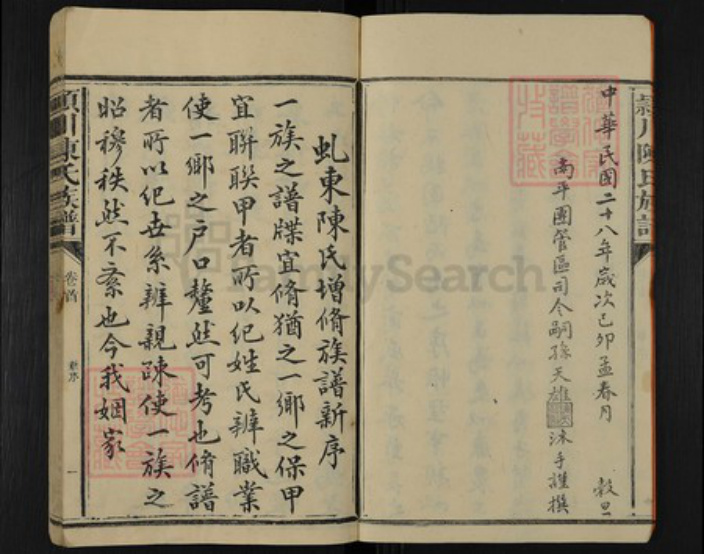 中華民國二十八年歲次己卯孟春月 穀旦
南平團管區司令嗣孫天雄 沐手謹撰
虬東陳氏增脩族譜新序
一族之譜牒宜脩猶之一鄉之保甲
宜聯聯甲者所以紀姓氏辨職業
使一鄉之戶口釐然可考也脩譜
者所以紀世系辨親疎使一族之
昭穆秩然不紊也今我姻家
潁川陳氏族譜
卷首
新序
一
FamilySearch